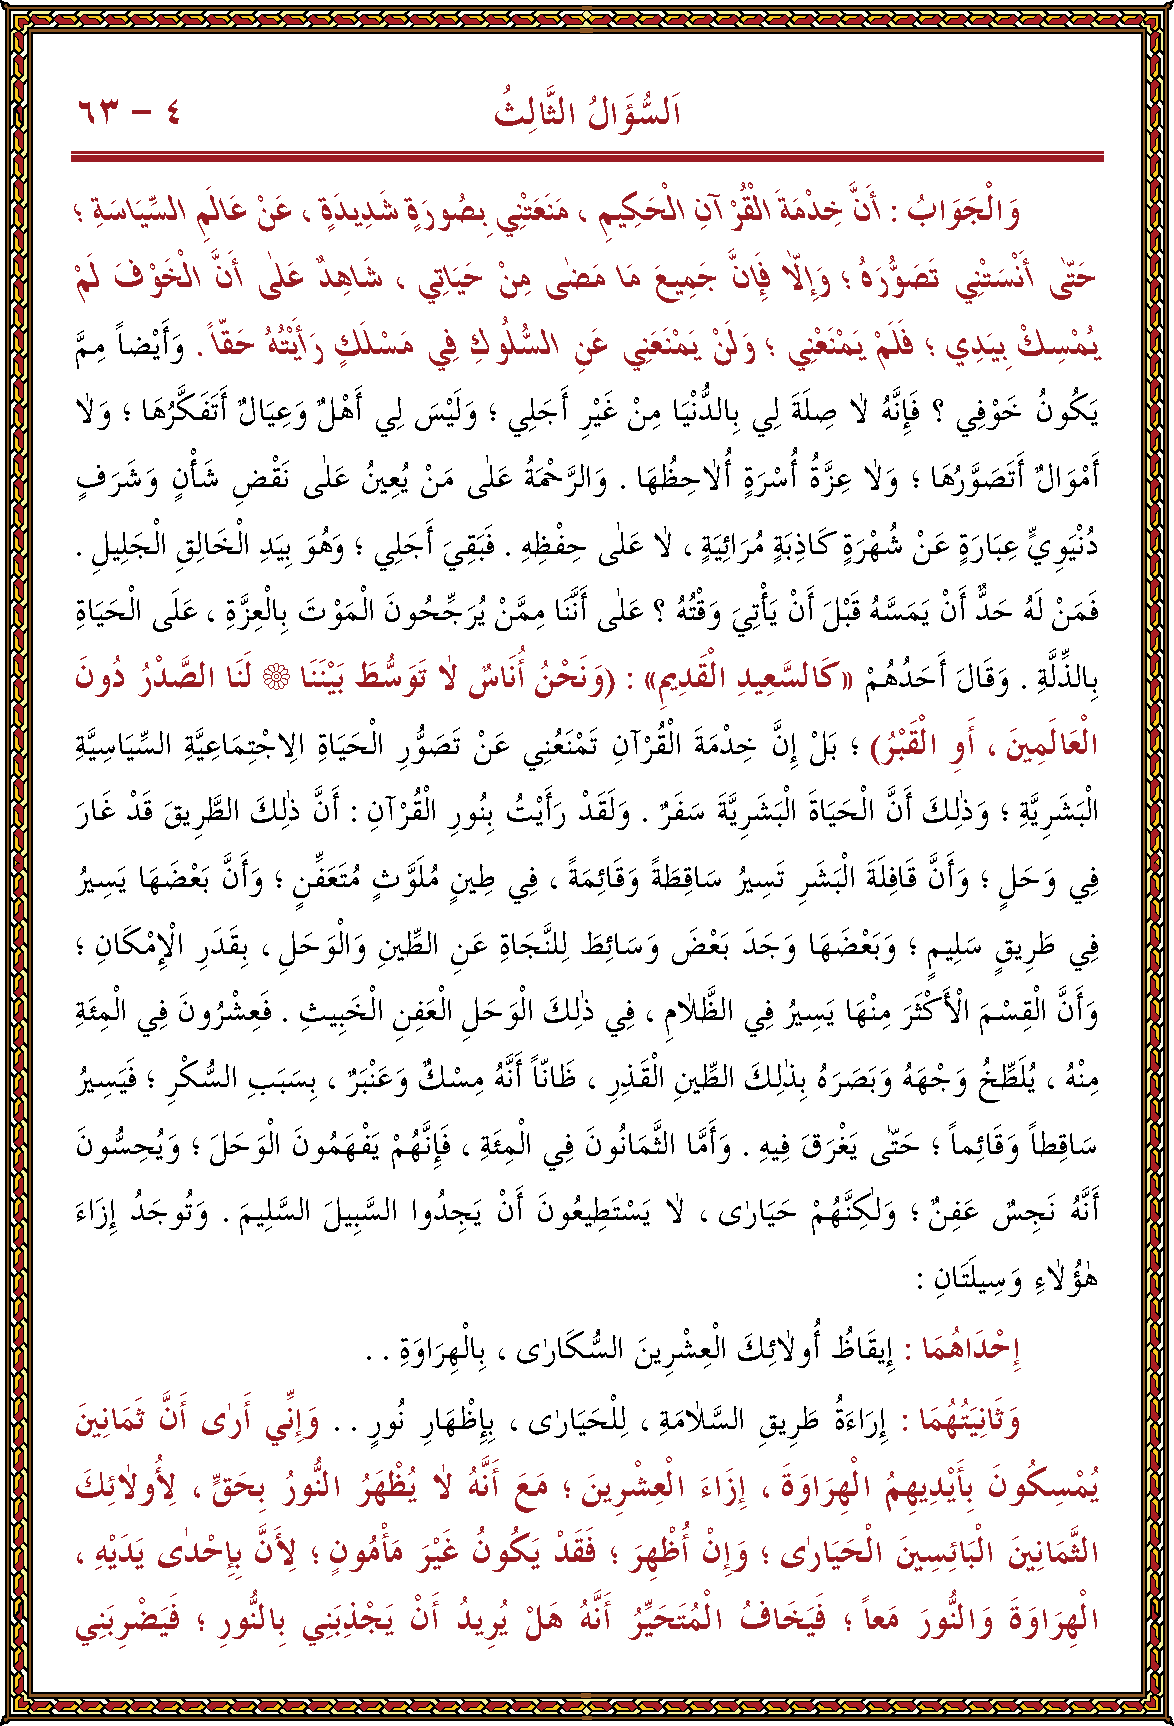 اَلسُّؤَالُ الثَّالِثُ ٤ - ٦٣
وَالْجَوَابُ : أَنَّ خِدْمَةَ الْقُرْ آنِ الْحَكِيمِ ، مَنَعَتْنِي بِصُورَةٍ شَدِيدَةٍ ، عَنْ عَالَمِ السِّيَاسَةِ ؛
حَتَّى أَنْسَتْنِي تَصَوُّرَهُ ؛ وَإِلاَّ فَإِنَّ جَمِيعَ مَا مَضٰى مِنْ حَيَاتِي ، شَاهِدٌ عَلٰى أَنَّ الْخَوْفَ لَمْ
يُمْسِكْ بِيَدِي ؛ فَلَمْ يَمْنَعْنِي ؛ وَلَنْ يَمْنَعَنِي عَنِ السُّلُوكِ فِي مَسْلَكٍ رَأَيْتُهُ حَقّاً . وَأَيْضاً مِمَّ
يَكُونُ خَوْفِي ؟ فَإِنَّهُ لاٰ صِلَةَ لِي بِالدُّنْيَا مِنْ غَيْرِ أَجَلِي ؛ وَلَيْسَ لِي أَهْلٌ وَعِيَالٌ أَتَفَكَّرُهَا ؛ وَلاٰ
أَمْوَالٌ أَتَصَوَّرُهَا ؛ وَلاٰ عِزَّةُ أُسْرَةٍ أُلاٰحِظُهَا . وَالرَّحْمَةُ عَلٰى مَنْ يُعِينُ عَلٰى نَقْضِ شَأْنٍ وَشَرَفٍ
دُنْيَوِيٍّ عِبَارَةٍ عَنْ شُهْرَةٍ كَاذِبَةٍ مُرَائِيَةٍ ، لاٰ عَلٰى حِفْظِهِ . فَبَقِيَ أَجَلِي ؛ وَهُوَ بِيَدِ الْخَالِقِ الْجَلِيلِ .
فَمَنْ لَهُ حَدٌّ أَنْ يَمَسَّهُ قَبْلَ أَنْ يَأْتِيَ وَقْتُهُ ؟ عَلٰى أَنَّنَا مِمَّنْ يُرَجِّحُونَ الْمَوْتَ بِالْعِزَّةِ ، عَلَى الْحَيَاةِ
بِالذِّلَّةِ . وَقَالَ أَحَدُهُمْ «كَالسَّعِيدِ الْقَدِيمِ» : (وَنَحْنُ أُنَاسٌ لاٰ تَوَسُّطَ بَيْنَنَا ۞ لَنَا الصَّدْرُ دُونَ
الْعَالَمِينَ ، أَوِ الْقَبْرُ) ؛ بَلْ إِنَّ خِدْمَةَ الْقُرْآنِ تَمْنَعُنِي عَنْ تَصَوُّرِ الْحَيَاةِ الاِجْتِمَاعِيَّةِ السِّيَاسِيَّةِ
الْبَشَرِيَّةِ ؛ وَذٰلِكَ أَنَّ الْحَيَاةَ الْبَشَرِيَّةَ سَفَرٌ . وَلَقَدْ رَأَيْتُ بِنُورِ الْقُرْآنِ : أَنَّ ذٰلِكَ الطَّرِيقَ قَدْ غَارَ
فِي وَحَلٍ ؛ وَأَنَّ قَافِلَةَ الْبَشَرِ تَسِيرُ سَاقِطَةً وَقَائِمَةً ، فِي طِينٍ مُلَوَّثٍ مُتَعَفِّنٍ ؛ وَأَنَّ بَعْضَهَا يَسِيرُ
فِي طَرِيقٍ سَلِيمٍ ؛ وَبَعْضَهَا وَجَدَ بَعْضَ وَسَائِطَ لِلنَّجَاةِ عَنِ الطِّينِ وَالْوَحَلِ ، بِقَدَرِ الْإِمْكَانِ ؛
وَأَنَّ الْقِسْمَ الْأَكْثَرَ مِنْهَا يَسِيرُ فِي الظَّلاٰمِ ، فِي ذٰلِكَ الْوَحَلِ الْعَفِنِ الْخَبِيثِ . فَعِشْرُونَ فِي الْمِئَةِ
مِنْهُ ، يُلَطِّخُ وَجْهَهُ وَبَصَرَهُ بِذٰلِكَ الطِّينِ الْقَذِرِ ، ظَانّاً أَنَّهُ مِسْكٌ وَعَنْبَرٌ ، بِسَبَبِ السُّكْرِ ؛ فَيَسِيرُ
سَاقِطاً وَقَائِماً ؛ حَتَّى يَغْرَقَ فِيهِ . وَأَمَّا الثَّمَانُونَ فِي الْمِئَةِ ، فَإِنَّهُمْ يَفْهَمُونَ الْوَحَلَ ؛ وَيُحِسُّونَ
أَنَّهُ نَجِسٌ عَفِنٌ ؛ وَلٰكِنَّهُمْ حَيَارٰى ، لاٰ يَسْتَطِيعُونَ أَنْ يَجِدُوا السَّبِيلَ السَّلِيمَ . وَتُوجَدُ إِزَاءَ
هٰؤُلاٰءِ وَسِيلَتَانِ :
إِحْدَاهُمَا : إِيقَاظُ أُولاٰئِكَ الْعِشْرِينَ السُّكَارٰى ، بِالْهِرَاوَةِ . .
وَثَانِيَتُهُمَا : إِرَاءَةُ طَرِيقِ السَّلاٰمَةِ ، لِلْحَيَارٰى ، بِإِظْهَارِ نُورٍ . . وَإِنِّي أَرٰى أَنَّ ثَمَانِينَ
يُمْسِكُونَ بِأَيْدِيهِمُ الْهِرَاوَةَ ، إِزَاءَ الْعِشْرِينَ ؛ مَعَ أَنَّهُ لاٰ يُظْهَرُ النُّورُ بِحَقٍّ ، لِأُولاٰئِكَ
الثَّمَانِينَ الْبَائِسِينَ الْحَيَارٰى ؛ وَإِنْ أُظْهِرَ ؛ فَقَدْ يَكُونُ غَيْرَ مَأْمُونٍ ؛ لِأَنَّ بِإِحْدٰى يَدَيْهِ ،
الْهِرَاوَةَ وَالنُّورَ مَعاً ؛ فَيَخَافُ الْمُتَحَيِّرُ أَنَّهُ هَلْ يُرِيدُ أَنْ يَجْذِبَنِي بِالنُّورِ ؛ فَيَضْرِبَنِي